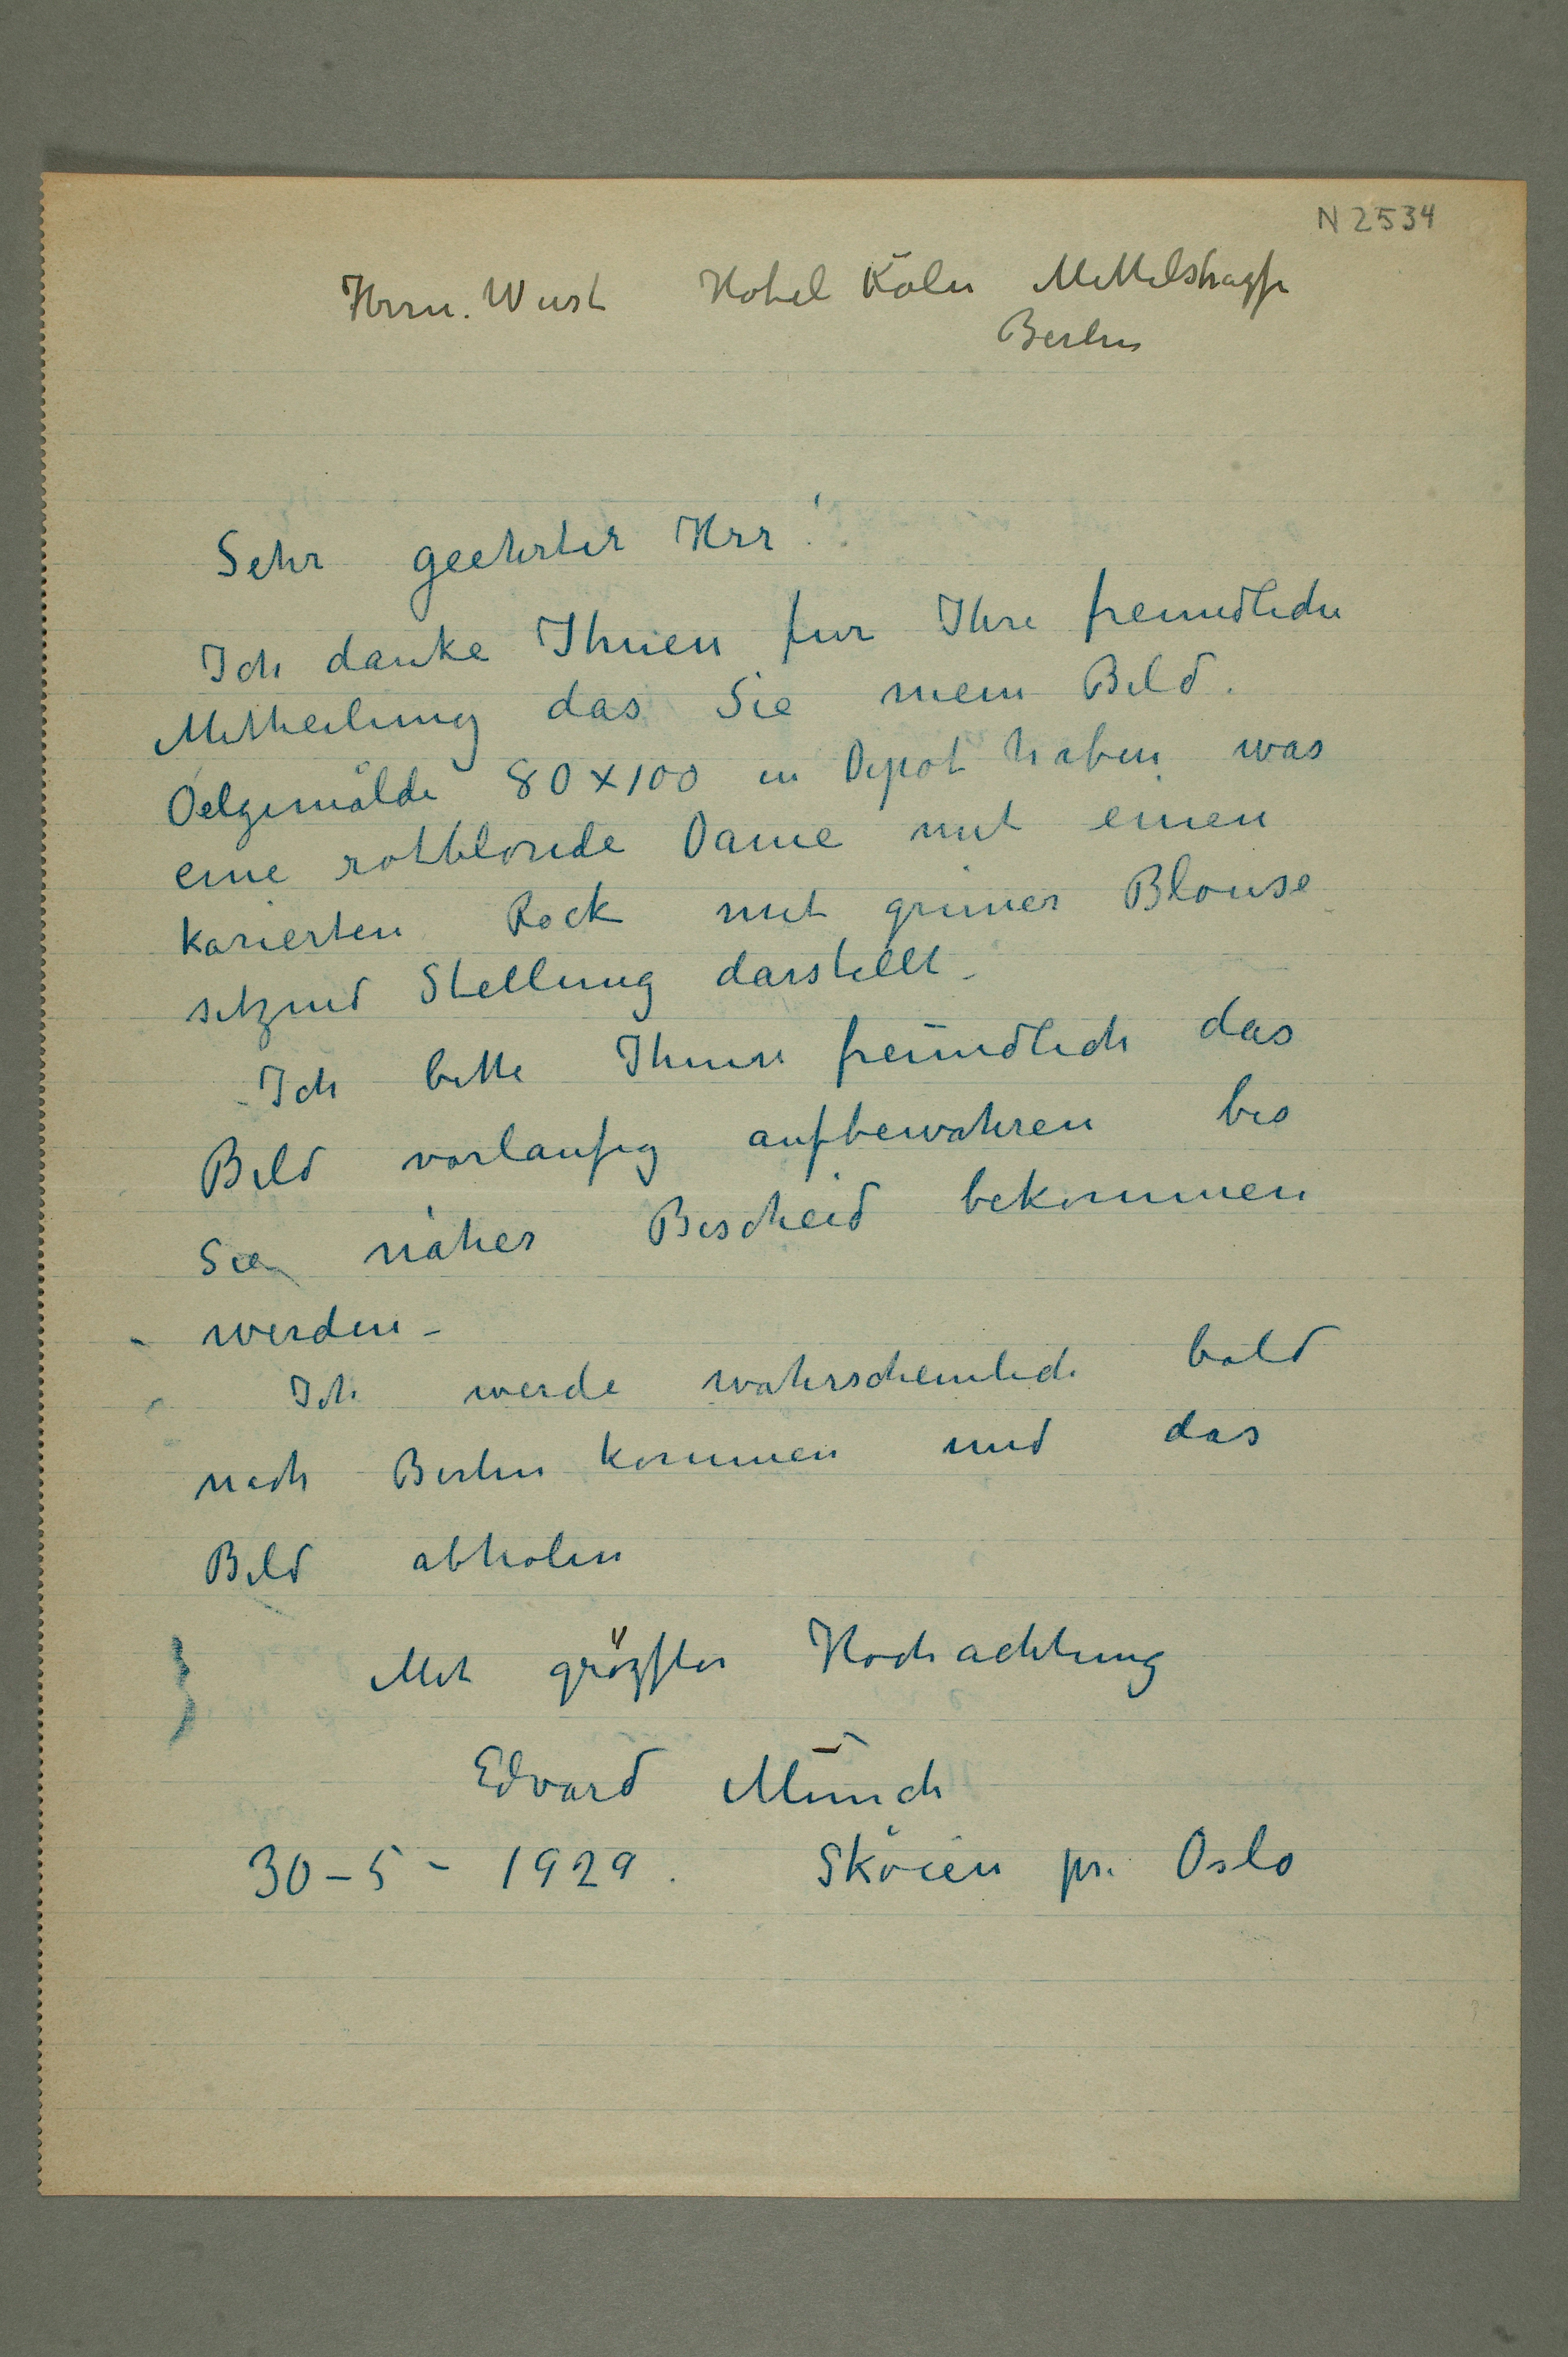 N 2534
Herrn. Wust Hotel Köln Mittelstrasse
Berlin
Sehr geehrter Herr!
Ich danke Ihnen fur Ihre freundliche
Mittheilung das Sie mein Bild.
Oelgemälde 80 x 100 in Depot haben was
eine rothblonde Dame mit einen
karierten Rock mit grüner Blouse
sitzend Stellung darstellt –
Ich bitte Ihnen freundlich das
Bild vorlaufig aufbewahren bis
Sie näher Bescheid bekommen
werden –
Ich werde wahrscheinlich bald
nach Berlin kommen und das
Bild abholen
Mit grözster Hochachtung
Edvard Munch
30 – 5 – 1929. Sköien pr. Oslo